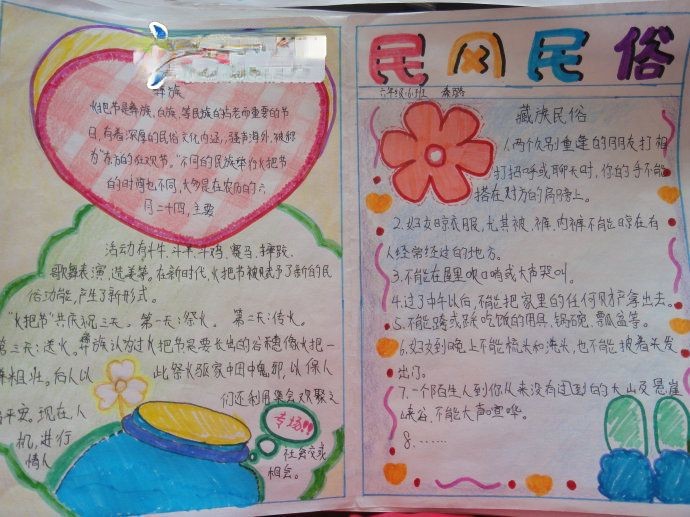 彝族
火把节是彝族、白族、等民族的古老而重要的节
日,有着深厚的民俗文化内涵,蜚声海外,被称
为"东方的狂欢节。"不同的民族举行火把节
的时间也不同,大多是在农历的六
月二十四,主要
活动有斗牛、斗羊、斗鸡、赛马、摔跤、
歌舞表演、选美等。在新时代,火把节被赋予了新的民
俗功能,产生了新形式。
"火把节"共庆祝三天。第一天:祭火。第二天:传火。
第三天:送火。彝族认为过火把节是要长出的谷穗像火把一
样粗壮。后人以此祭火驱家中田中鬼邪,以保人
平安。现在人们还利用集会欢聚之
机,进行社会交或
情人相会。
专场!!
民风民俗
六年级(6)班
藏族民俗
1.两个久别重逢的朋友打招
打招呼或聊天时,你的手不能
搭在对方的肩膀上。
2.妇女晾衣服,尤其被、裤、内裤不能晾在有
人经常经过的地方。
3.不能在屋里吹口哨或大声哭叫。
4.过了中午以后,不能把家里的任何财产拿出去。
5.不能跨或跃吃饭的用具,锅碗、瓢瓜盆等。
6.妇女到晚上不能梳头和洗头,也不能披着头发
出门。
7.一个陌生人到你从来没有团到的大山及悬崖
峡谷,不能大声喧哗。
8.……